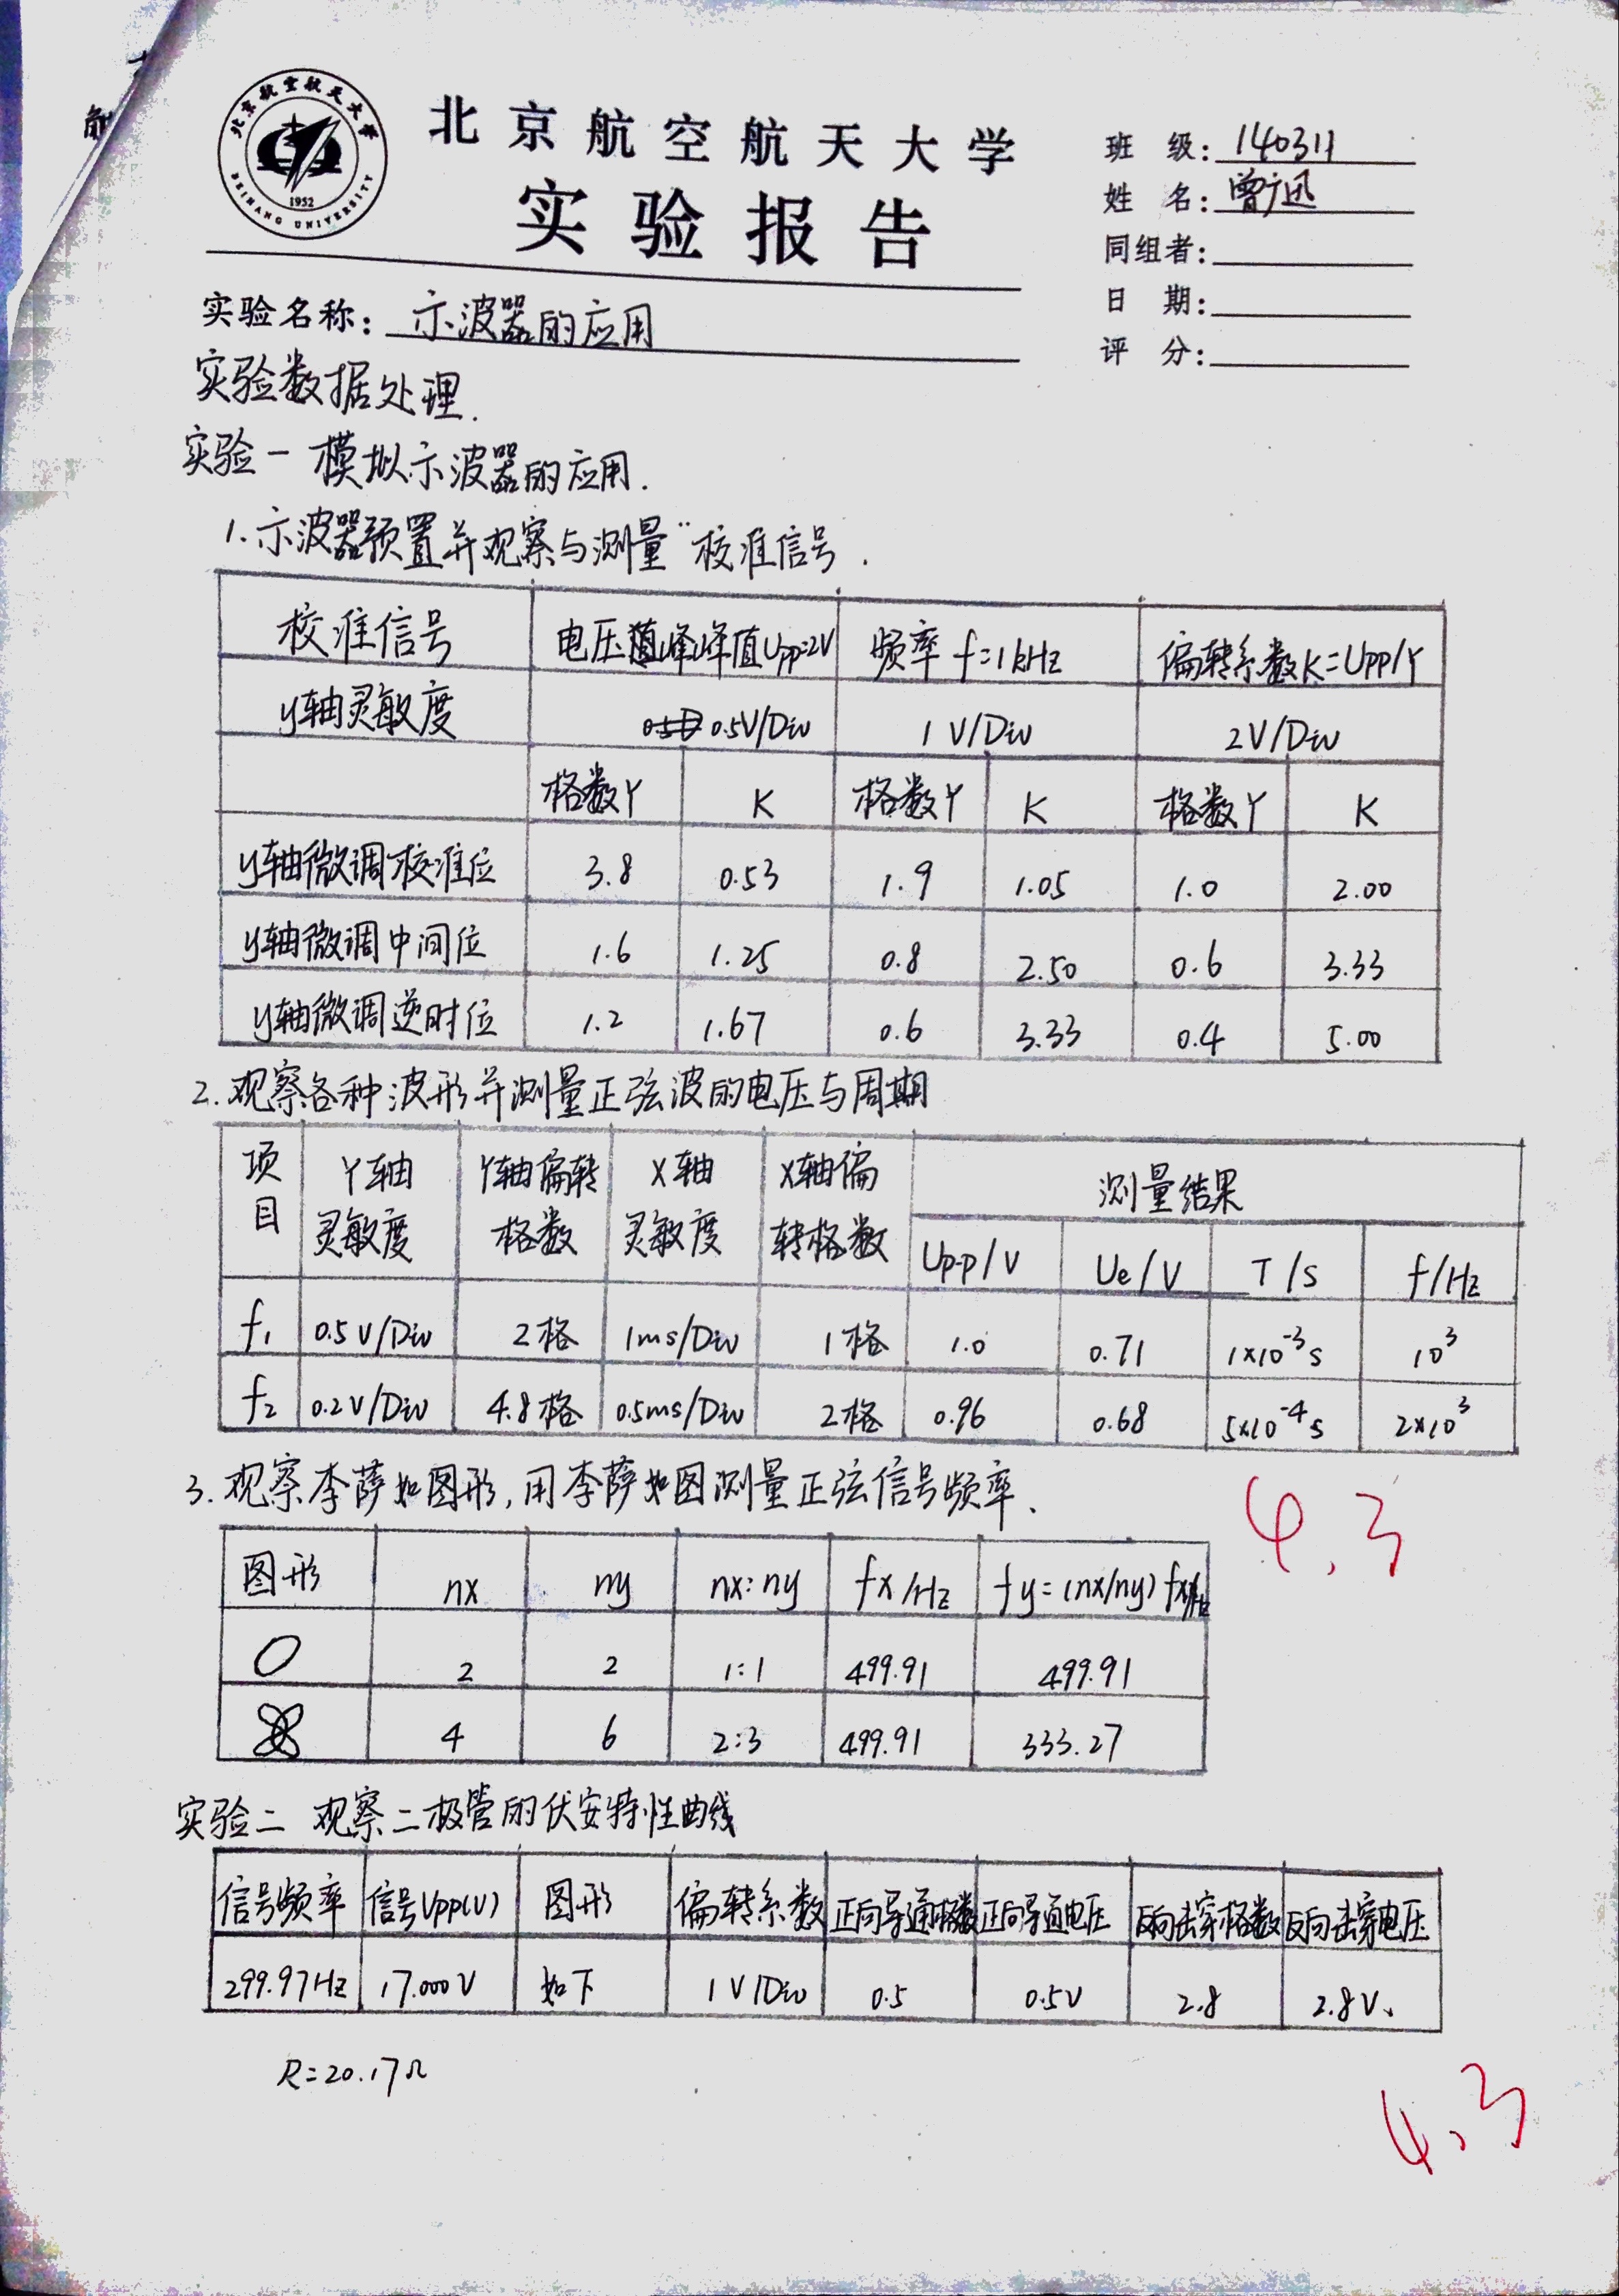 北京航空航天大学
BEIHANG UNIVERSITY
1952
北京航空航天大学
实验报告
班 级: 140311
姓 名: 曾广迅
同组者:
日 期:
评 分:
实验名称: 示波器的应用
实验数据处理.
实验一 模拟示波器的应用.
1.示波器预置并观察与测量"校准信号.
校准信号 电压峰峰值Upp=2V 频率 f=1kHz 偏转系数K=Upp/Y
y轴灵敏度 0.5V/Div 1 V/Div 2V/Div
格数Y K 格数Y K 格数Y K
y轴微调校准位 3.8 0.53 1.9 1.05 1.0 2.00
y轴微调中间位 1.6 1.25 0.8 2.50 0.6 3.33
y轴微调逆时位 1.2 1.67 0.6 3.33 0.4 5.00
2.观察各种波形并测量正弦波的电压与周期
项目 Y轴灵敏度 Y轴偏转格数 X轴灵敏度 X轴偏转格数 测量结果
Up-p/V Ue/V T/s f/Hz
f₁ 0.5V/Div 2格 1ms/Div 1格 1.0 0.71 1×10⁻³s 10³
f₂ 0.2V/Div 4.8格 0.5ms/Div 2格 0.96 0.68 5×10⁻⁴s 2×10³
3.观察李萨如图形,用李萨如图测量正弦信号频率.
4.3
图形 nx ny nx:ny fx/Hz fy=(nx/ny)fx/Hz
2 2 1:1 499.91 499.91
4 6 2:3 499.91 333.27
实验二 观察二极管的伏安特性曲线
信号频率 信号Upp(V) 图形 偏转系数 正向导通格数 正向导通电压 反向击穿格数 反向击穿电压
299.97Hz 17.000V 如下 1V/Div 0.5 0.5V 2.8 2.8V.
R=20.17Ω
4.3